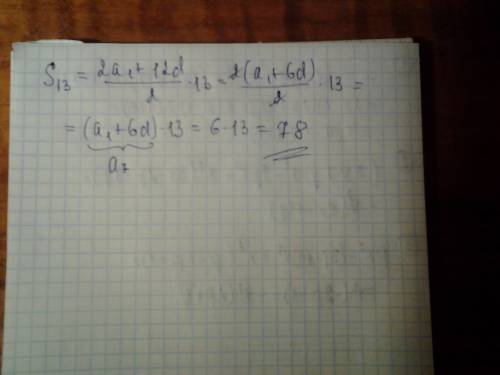 S₁₃ = (2a₁ + 12d)/2 · 13 = 2(a₁ + 6d)/2 · 13 =
= (a₁ + 6d) · 13 = 6 · 13 = 78
a₇